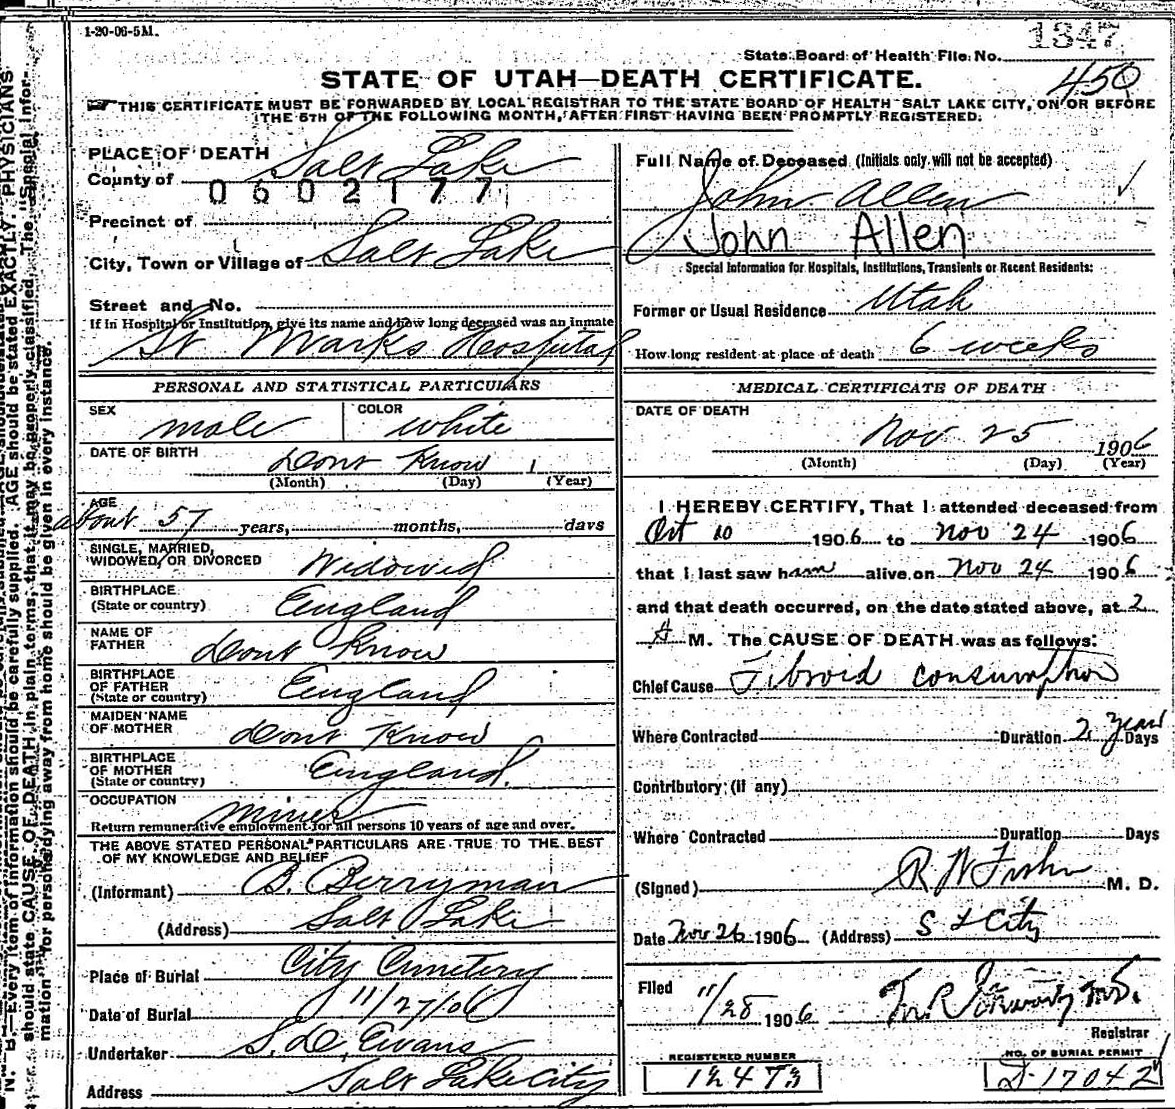 1-20-06-5M.
1347
State Board of Health File No.
450
STATE OF UTAH—DEATH CERTIFICATE.
THIS CERTIFICATE MUST BE FORWARDED BY LOCAL REGISTRAR TO THE STATE BOARD OF HEALTH SALT LAKE CITY, ON OR BEFORE
THE 5TH OF THE FOLLOWING MONTH, AFTER FIRST HAVING BEEN PROMPTLY REGISTERED.
PLACE OF DEATH
County of Salt Lake
0602177
Precinct of
City, Town or Village of Salt Lake
Street and No.
If in Hospital or Institution, give its name and how long deceased was an inmate
St Marks Hospital
PERSONAL AND STATISTICAL PARTICULARS
SEX male COLOR white
DATE OF BIRTH Dont Know 1
(Month) (Day) (Year)
AGE
about 57 years, months, days
SINGLE, MARRIED,
WIDOWED, OR DIVORCED Widowed
BIRTHPLACE
(State or country) England
NAME OF
FATHER Dont Know
BIRTHPLACE
OF FATHER
(State or country) England
MAIDEN NAME
OF MOTHER Dont Know
BIRTHPLACE
OF MOTHER
(State or country) England.
OCCUPATION Miner
Return remunerative employment for all persons 10 years of age and over.
THE ABOVE STATED PERSONAL PARTICULARS ARE TRUE TO THE BEST
OF MY KNOWLEDGE AND BELIEF
(Informant) B. Berryman
(Address) Salt Lake
Place of Burial City Cemetery
Date of Burial 11/27/06
Undertaker S. D. Evans
Address Salt Lake City
Full Name of Deceased (Initials only will not be accepted)
John Allen
John Allen
Special Information for Hospitals, Institutions, Transients or Recent Residents:
Former or Usual Residence Utah
How long resident at place of death 6 weeks
MEDICAL CERTIFICATE OF DEATH
DATE OF DEATH
Nov 25 1906
(Month) (Day) (Year)
I HEREBY CERTIFY, That I attended deceased from
Oct 10 1906 to Nov 24 1906
that I last saw him alive on Nov 24 1906
and that death occurred, on the date stated above, at 2
A M. The CAUSE OF DEATH was as follows:
Chief Cause Fibroid consumption
Where Contracted Duration 2 Years Days
Contributory (if any)
Where Contracted Duration Days
(Signed) M. D.
Date Nov 26 1906 (Address) S L City
Filed 11/28 1906
Registrar
REGISTERED NUMBER
12473
NO. OF BURIAL PERMIT
D-17042
N. B.—Every item of information should be carefully supplied. AGE should be stated EXACTLY. PHYSICIANS
should state CAUSE OF DEATH in plain terms, that it may be properly classified. The "Special Infor-
mation" for persons dying away from home should be given in every instance.